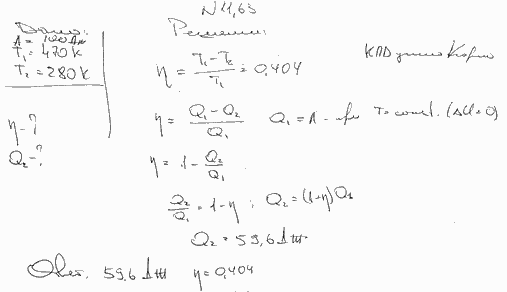 N 11,63
Дано:
A = 100 Дж
T₁ = 470 K
T₂ = 280 K
η - ?
Q₂ - ?
Решение:
η = (T₁ - T₂)/T₁ = 0,404 КПД цикла Карно
η = (Q₁ - Q₂)/Q₁ Q₁ = A - при T = const. (ΔU = 0)
η = 1 - Q₂/Q₁
Q₂/Q₁ = 1 - η ; Q₂ = (1-η) Q₁
Q₂ = 59,6 Дж
Ответ: 59,6 Дж η = 0,404